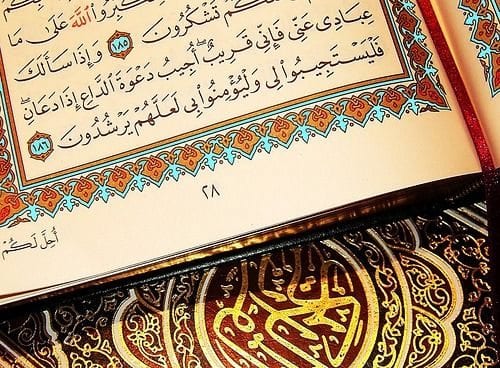 كَبِّرُوا اللَّهَ عَلَىٰ مَا
تَشْكُرُونَ ١٨٥ وَإِذَا سَأَلَكَ
عِبَادِي عَنِّي فَإِنِّي قَرِيبٌ ۖ أُجِيبُ دَعْوَةَ الدَّاعِ إِذَا دَعَانِ ۖ
فَلْيَسْتَجِيبُوا لِي وَلْيُؤْمِنُوا بِي لَعَلَّهُمْ يَرْشُدُونَ ١٨٦
٢٨
أُحِلَّ لَكُمْ